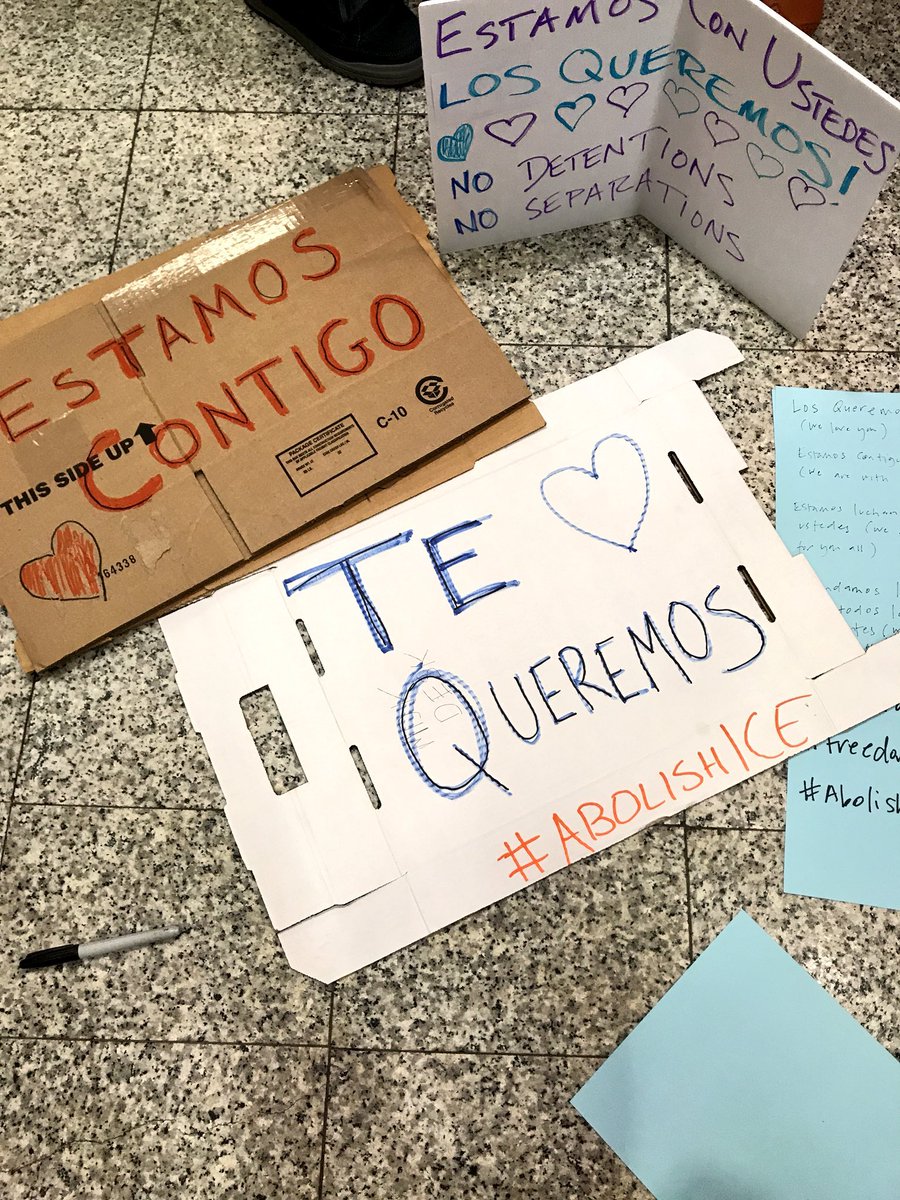 ESTAMOS CON USTEDES
LOS QUEREMOS!
NO DETENTIONS
NO SEPARATIONS
ESTAMOS
CONTIGO
THIS SIDE UP
PACKAGE CERTIFICATE
C-10
Corrugated
Recycles
64338
TE
QUEREMOS
#ABOLISHICE
Los Querem
(we love you)
Estamos contig
(we are with
Estamos luchan
ustedes (we
for you all)
ndamos
todos
tes (w
freeda
#Abolis